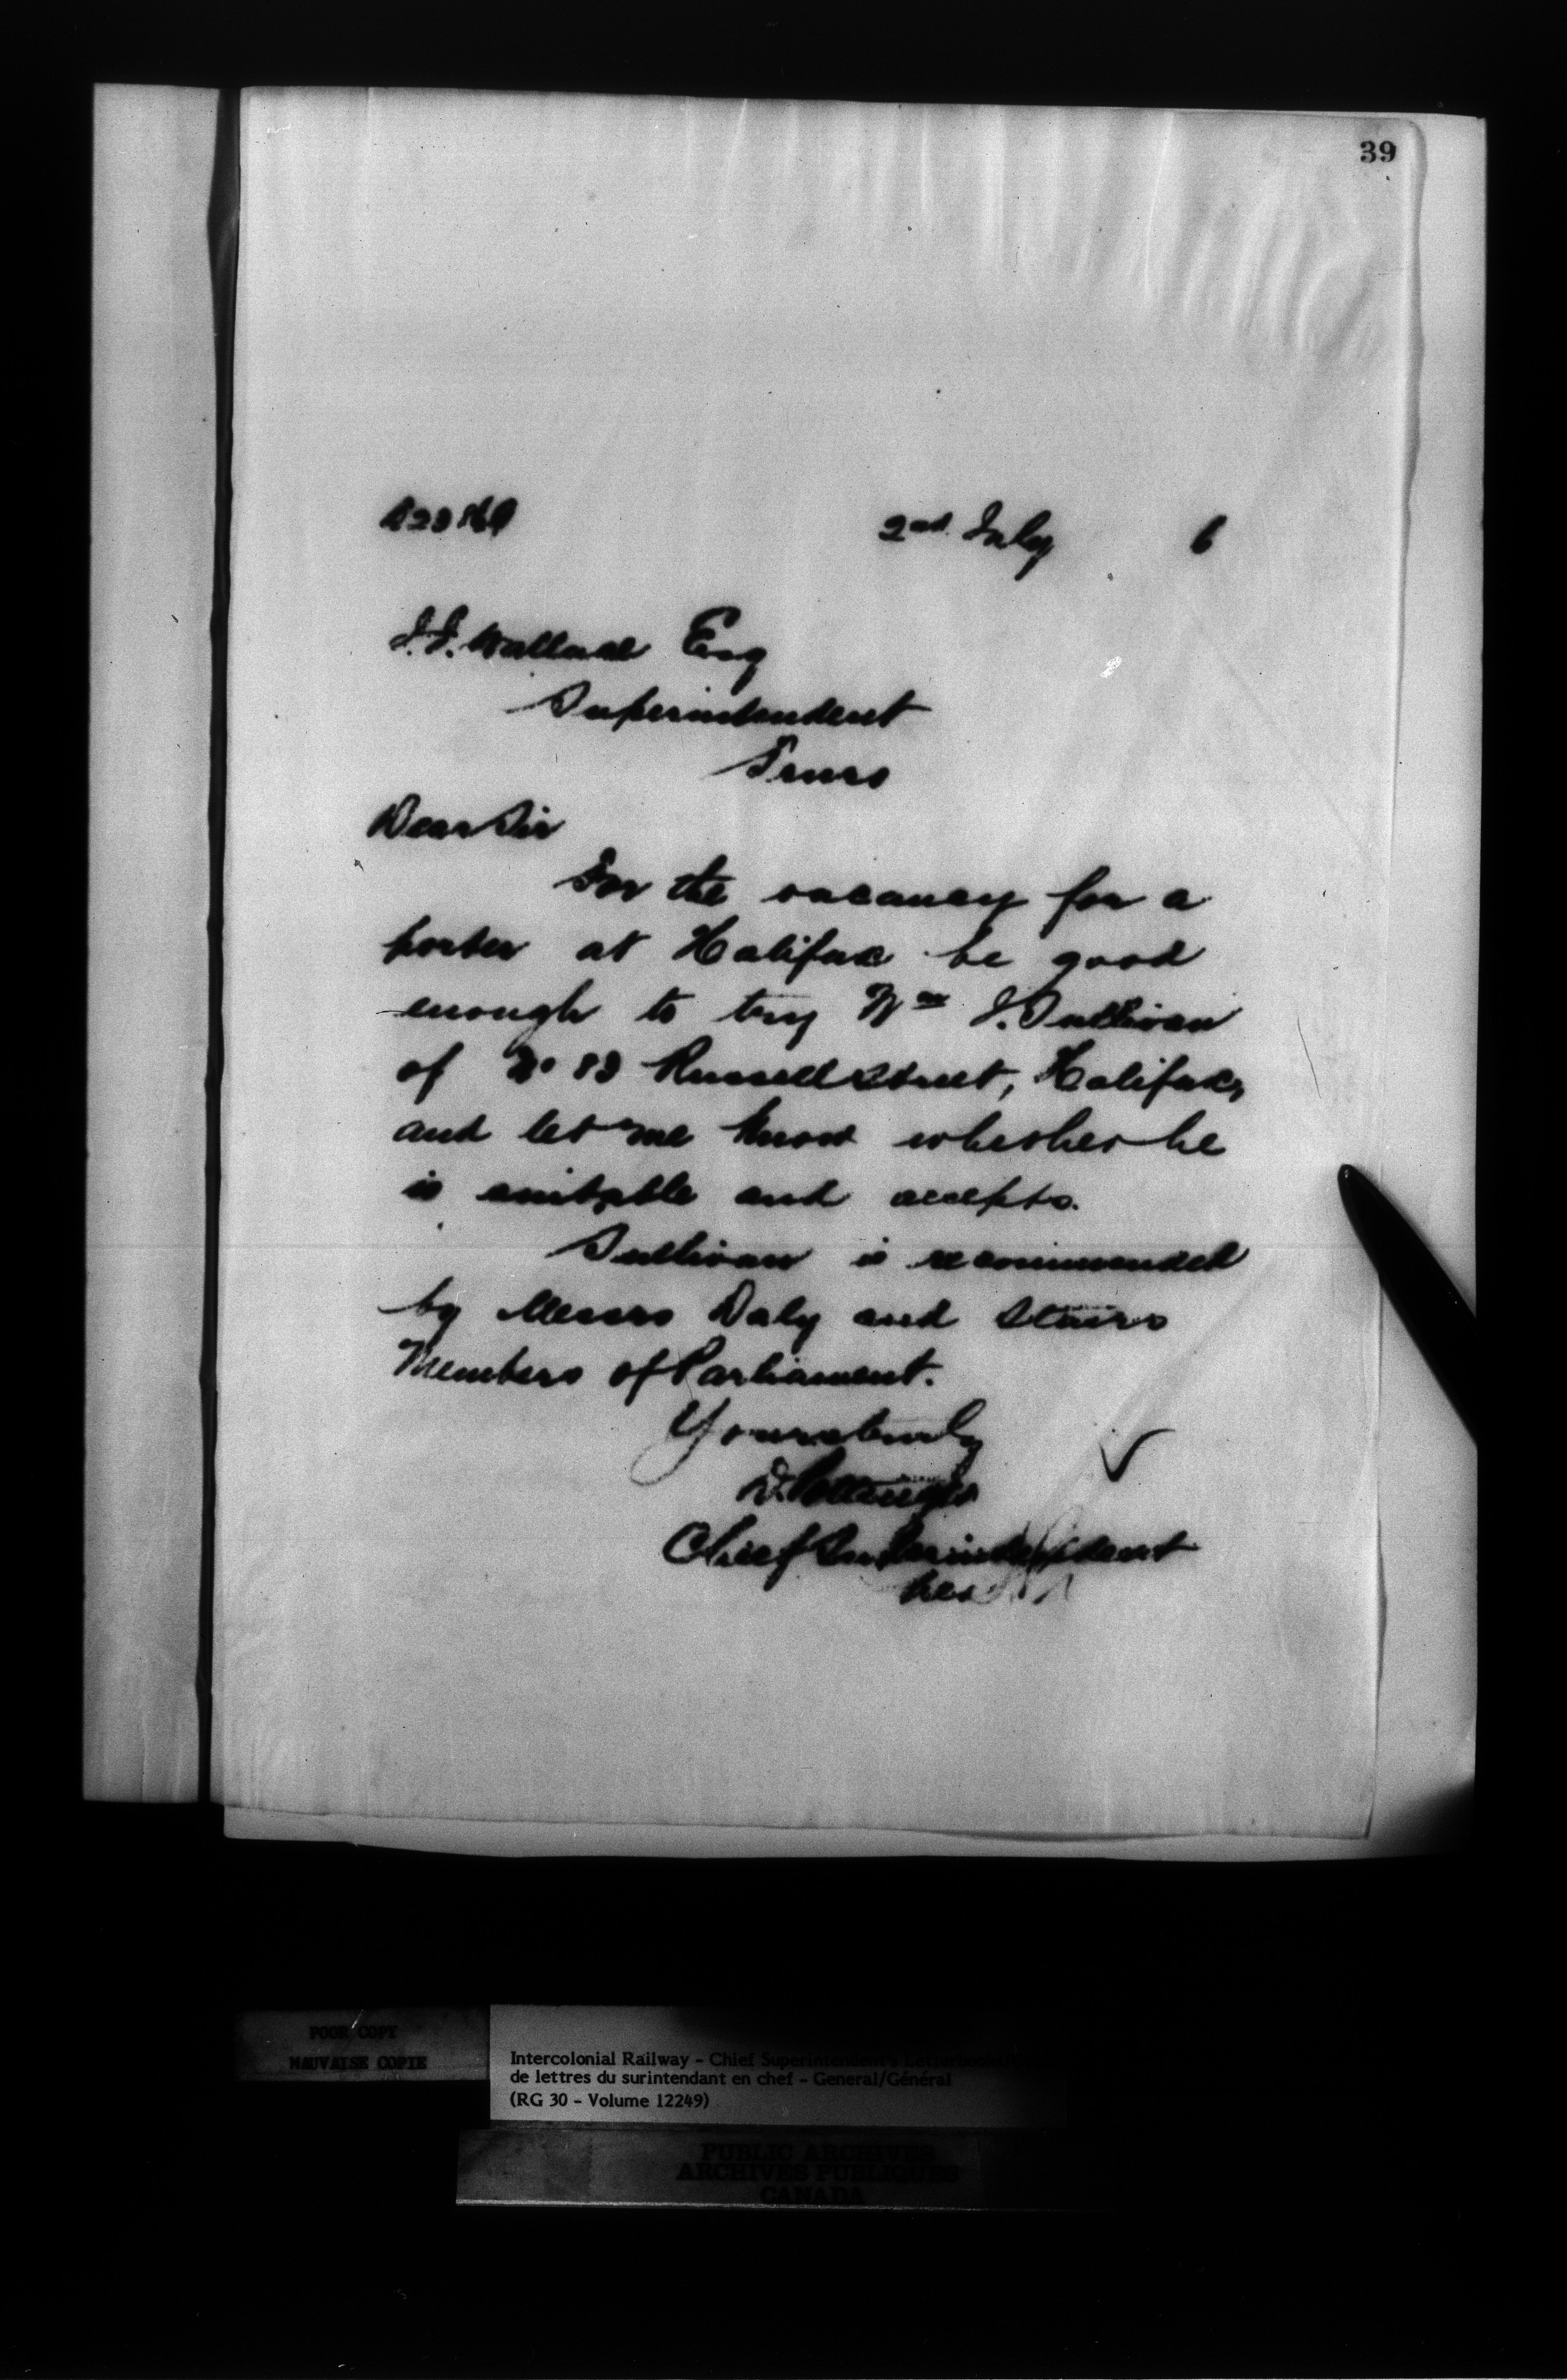 39
2nd July 6
J.J. Wallace Esq
Superintendent
Truro
Dear Sir
For the vacancy for a
porter at Halifax be good
enough to try Wm J. Sullivan
of No 83 Russell Street, Halifax,
and let me know whether he
is suitable and accepts.
Sullivan is recommended
by Messrs Daly and Stairs
Members of Parliament.
Yours truly
D. Pottinger
Chief Superintendent
POOR COPY
MAUVAISE COPIE
Intercolonial Railway - Chief Superintendent's Letterbooks/
de lettres du surintendant en chef - General/Général
(RG 30 - Volume 12249)
PUBLIC ARCHIVES
ARCHIVES PUBLIQUES
CANADA